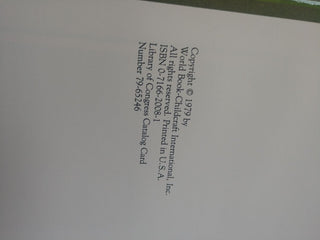 Copyright © 1979 by
World Book-Childcraft International, Inc.
All rights reserved. Printed in U.S.A.
ISBN 0-7166-2008-1
Library of Congress Catalog Card
Number 79-65246